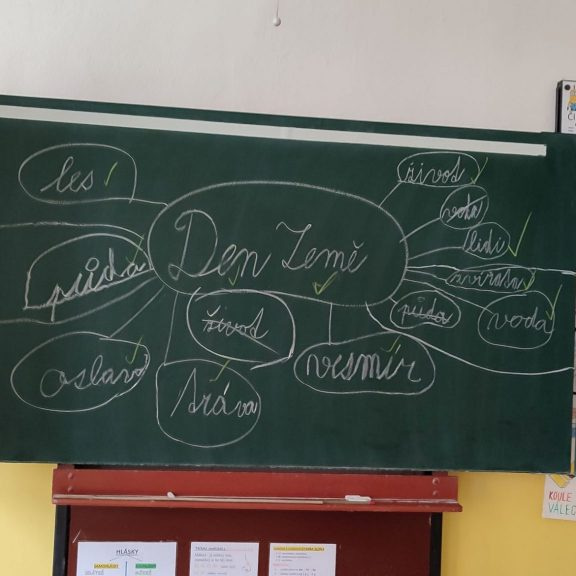 les
život
voda
Den Země
lidi
půda
zvířata
půda
voda
život
oslava
tráva
vesmír
KOULE
VÁLEC
HLÁSKY